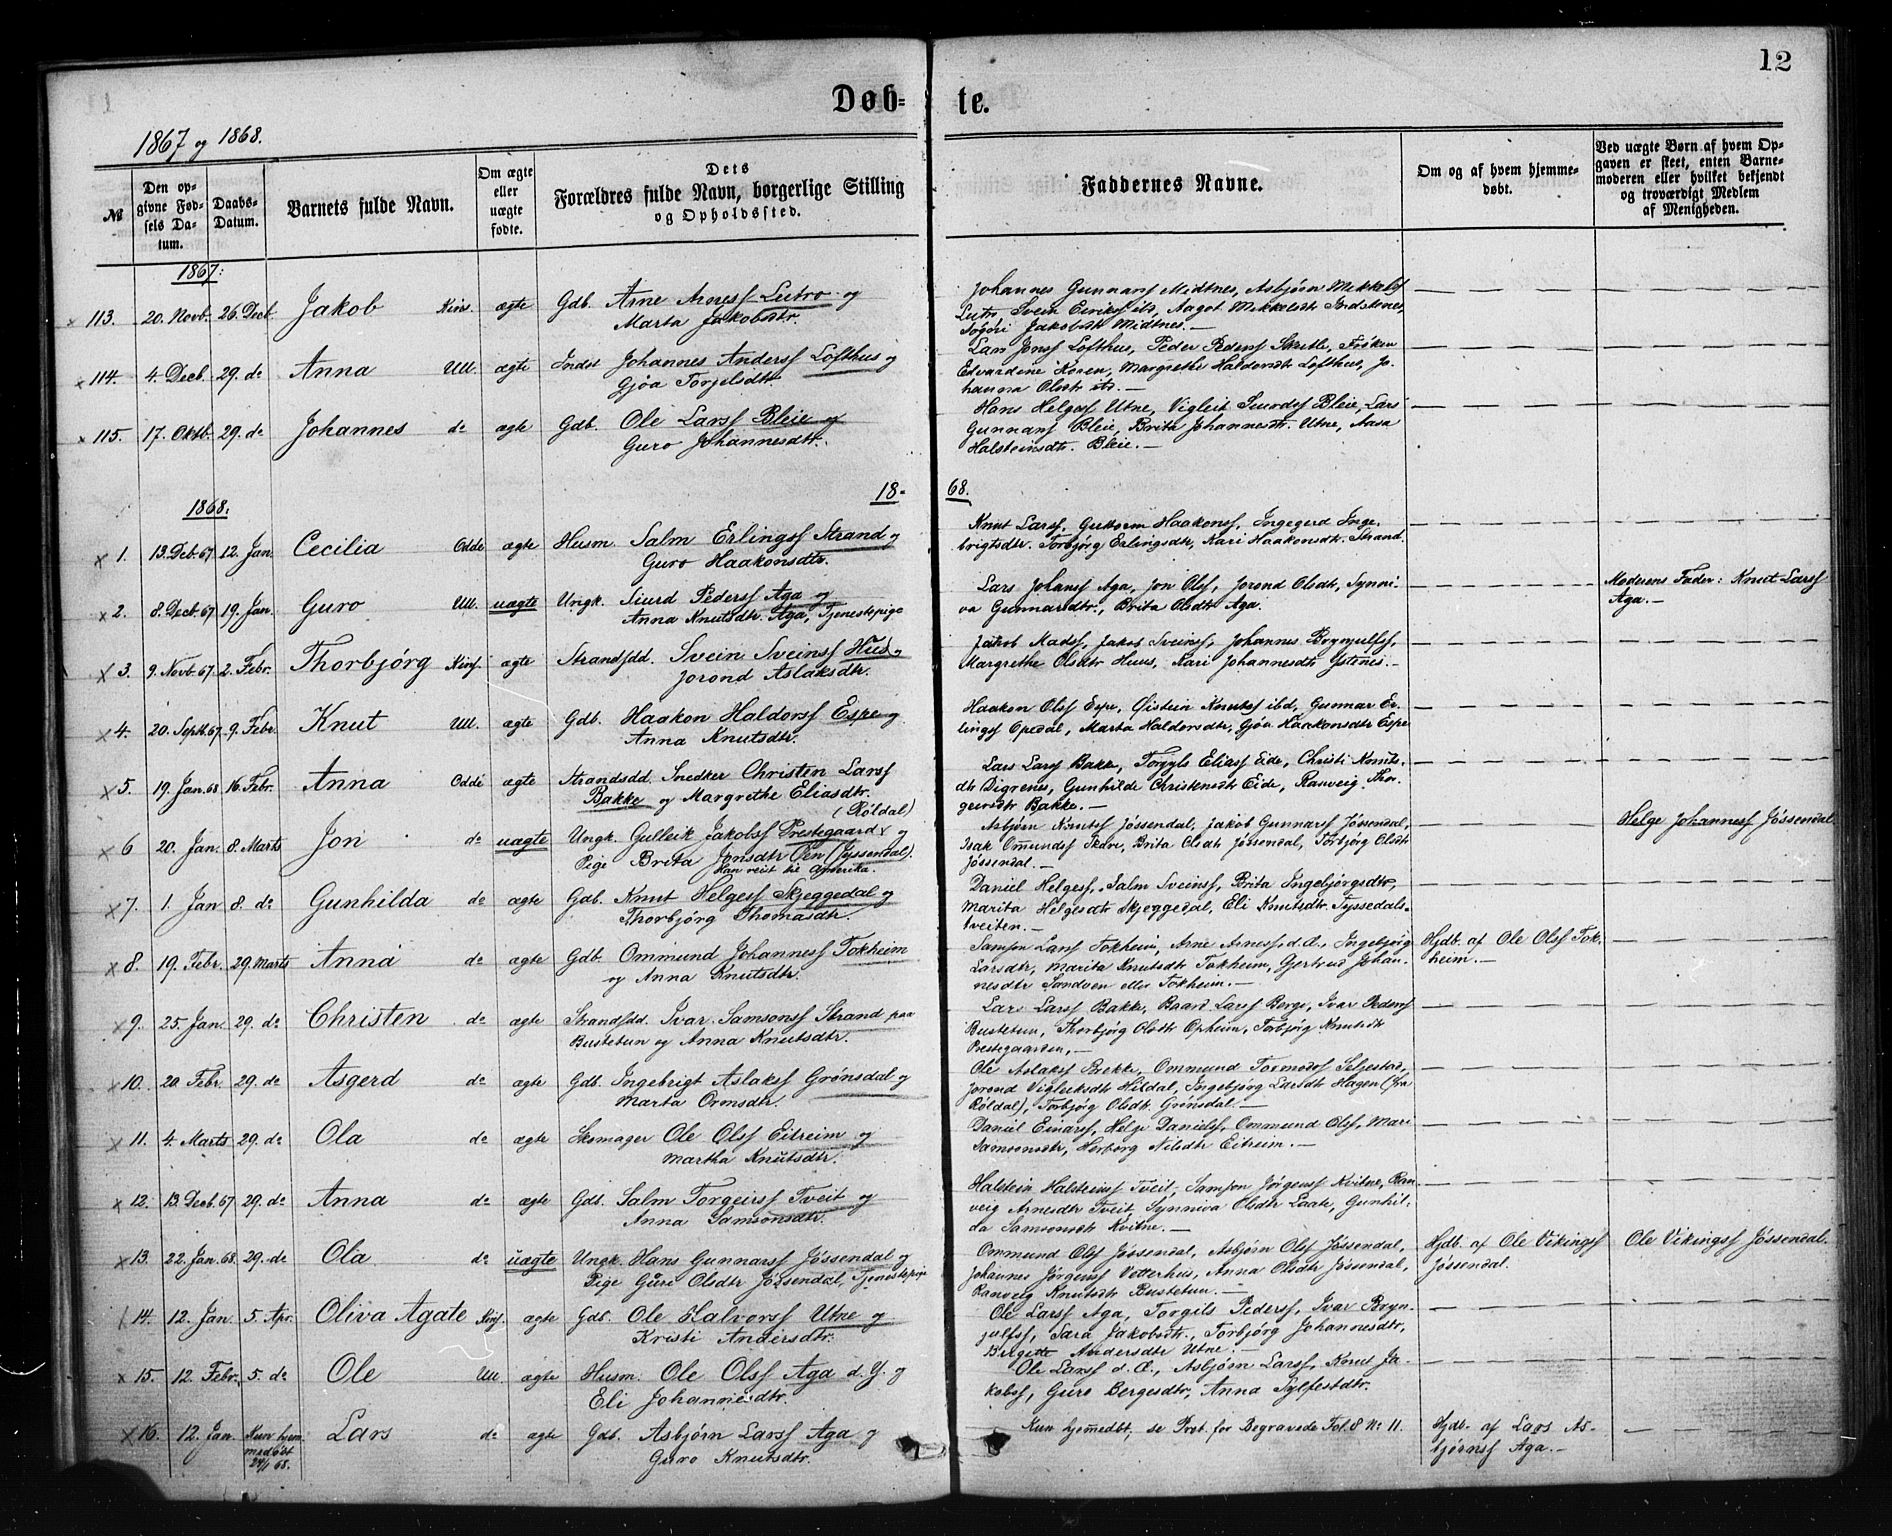 12
Døb- te.
1867 og 1868.
№
Den opgivne Fødsels Datum.
Daabs-Datum.
Barnets fulde Navn.
Om ægte eller uægte fødte.
Dets Forældres fulde Navn, borgerlige Stilling og Opholdssted.
Faddernes Navne.
Om og af hvem hjemmedøbt.
Ved uægte Børn af hvem Opgaven er skeet, enten Barnemoderen eller hvilket bekjendt og troværdigt Medlem af Menigheden.
1867:
113. 20. Novb. 26. Decb. Jakob Kins. ægte Gdb. Arne Arnesf Lutro og
Marta Jakobsdtr.
Johannes Gunnarsf Midtnes, Asbjørn Mikkelsf
Lutro Svein Eiriksf ib, Aagot Mikkelsdt Indstenes,
Jakobsdt Midtnes. —
114. 4. Decb. 29. do Anna Ull. ægte Indst Johannes Andersf Lofthus og
Gjøa Torgelsdtr
Lars Jonsf Lofthus, Peder Pedersf Skrede, Frøken
Edvardine Koren, Margrethe Haldorsdt Lofthus, Jo-
hanna Olsdtr
115. 17. Oktb. 29. do Johannes do ægte Gdb. Ole Larsf Bleie og
Guro Johannesdtr.
Hans Helgesf Utne, Vigleik Siurdsf Bleie, Lars
Gunnarsf Bleie, Brita Johannesdt. Utne, Aasa
Halsteinsdtr. Bleie. —
18- 68.
1868.
1. 13. Decb. 67 12. Jan. Cecilia Odde ægte Husm. Salm Erlingsf Strand og
Guro Haakonsdtr.
Knut Larsf, Guttorm Haakonsf, Ingegerd Inge-
brigtsdtr. Torbjørg Erlingsdtr, Kari Haakonsdt. Strand.
2. 8. Decb. 67 19. Jan. Guro Ull. uægte Ungk. Siurd Pedersf Aga og
Anna Knutsdtr. Aga, Tjenestepige
Lars Johansf Aga, Jon Olsf, Jorond Olsdt, Synni-
va Gunnarsdtr., Brita Olsdtr Aga.
Moderens Fader: Knut Larsf
Aga. —
3. 9. Novb. 67. 2. Febr. Thorbjørg Kinf. ægte Strandsdd. Svein Sveinsf Hus og
Jorond Aslaksdtr.
Jakob Madsf, Jakob Sveinsf, Johannes Brynjulfsf,
Margrethe Olsdtr Huus, Kari Johannesdt Ystenes. —
4. 20. Septb. 67. 9. Febr. Knut Ull. ægte Gdb. Haakon Haldorsf Espe og
Anna Knutsdtr.
Haakon Olsf Espe, Øistein Knutsf ibd, Gunnar Er-
lingsf Opedal, Marta Haldorsdtr, Gjøa Haakonsdtr Espe
5. 19. Jan. 68 16. Febr. Anna Odde ægte Strandsdd. Snedker Christen Larsf
Bakke og Margrethe Eliasdtr.
Lars Larsf Bakke, Eliasf Eide, Christi
Digrenes, Gunhilde Christensdt Eide, Ranveig Thor-
geirsdtr Bakke. —
(Røldal)
6 20. Jan. 8. Marts Jon do uægte Ungk. Gulleik Jakobsf Prestegaard og
Pige Brita Jonsdtr Øen (Jyssendal).
Han reist til Amerika.
Asbjørn Knutsf Jøssendal, Jakob Gunnarsf Jøssendal,
Isak Omundsf, Brita Olsdt Jøssendal, Torbjørg Olsdt
Jøssendal. —
Helge Johannesf Jøssendal
7. 1. Jan 8. do Gunhilda do ægte Gdb. Knut Helgesf Skjeggedal og
Thorbjørg Thomasdtr.
Daniel Helgesf, Salm Sveinsf, Brita Ingebjørgsdtr,
Marita Helgesdtr Skjeggedal, Eli Knutsdtr. Tyssedals-
tveiten. —
8. 19. Febr. 29. Marts Anna do ægte Gdb. Ommund Johannesf Tokheim
og Anna Knutsdtr.
Samson Larsf Tokheim, Arne Arnesf d. Æ., Ingebjørg
Larsdtr, Marita Knutsdtr Tokheim, Gjertrud Johan-
nesdtr Sandven eller Tokheim. —
Hjdb. af Ole Olsf Tok-
heim. —
9. 25. Jan. 29. do Christen do ægte Strandsdd. Ivar Samsonsf Strand paa
Bustetun og Anna Knutsdtr.
Lars Larsf Bakke, Baard Larsf Berge, Ivar Pedersf
Bustetun, Thorbjørg Olsdt Opheim, Torbjørg Knutsdt
Prestegaarden, —
10. 20. Febr. 29. do Asgerd do ægte Gdb. Ingebrigt Aslaksf Grønsdal og
Marta Ormsdtr.
Ole Aslaksf Brekke, Ommund Tormodsf Seljestad,
Jorond Vigleiksdt Hildal, Ingebjørg Larsdt Hagen (fra
Røldal), Torbjørg Olsdtr. Grønsdal. —
11. 4. Marts 29. do Ola do ægte Skomager Ole Olsf Eitreim og
Martha Knutsdtr.
Daniel Einarsf, Helge Danielsf, Ommund Olsf, Mari
Samsonsdtr, Herborg Nilsdtr Eitreim. —
12. 13. Decb. 67 29. do Anna do ægte Gdb. Salm Torgeirsf Tveit og
Anna Samsonsdtr.
Halstein Halsteinsf Tveit, Samson Jørgensf Kvitne, Ran-
veig Arnesdtr Tveit, Synniva Olsdtr Laate, Gunhil-
da Samsonsdt Kvitne. —
13. 22. Jan. 68. 29. do Ola do uægte Ungk. Hans Gunnarsf Jøssendal og
Pige Guri Olsdtr Jøssendal, Tjenestepige
Ommund Olsf Jøssendal, Asbjørn Olsf Jøssendal,
Johannes Jørgensf Vetterhus, Anna Olsdtr Jøssendal,
Ranveig Knutsdt Bustetun. —
Hjdb. af Ole Vikingsf
Jøssendal.
Ole Vikingsf Jøssendal.
14. 12. Jan. 5. Apr. Oliva Agate Kinf. ægte Gdb. Ole Halvorsf Utne og
Kristi Andersdtr.
Ole Larsf Aga, Torgils Pedersf, Ivar Bryn-
julfsf, Sara Jakobsdtr., Torbjørg Johannesdtr,
Birgitte Andersdtr Utne. —
15. 12. Febr. 5. do Ole Ull. ægte Husm. Ole Olsf Aga d. Y. og
Eli Johannesdtr.
Ole Larsf d. Æ., Asbjørn Larsf, Knut Ja-
kobsf, Guro Bergesdtr, Anna Sylfestdtr.
16. 12. Jan. Kun hjem-
medøbt
24/1 68. Lars do ægte Gdb. Asbjørn Larsf Aga og
Guro Knutsdtr.
Kun hjemedbt, se Prot. for Begravede Fol. 8 No 11.
Hjdb. af Lars As-
bjørnsf Aga. —